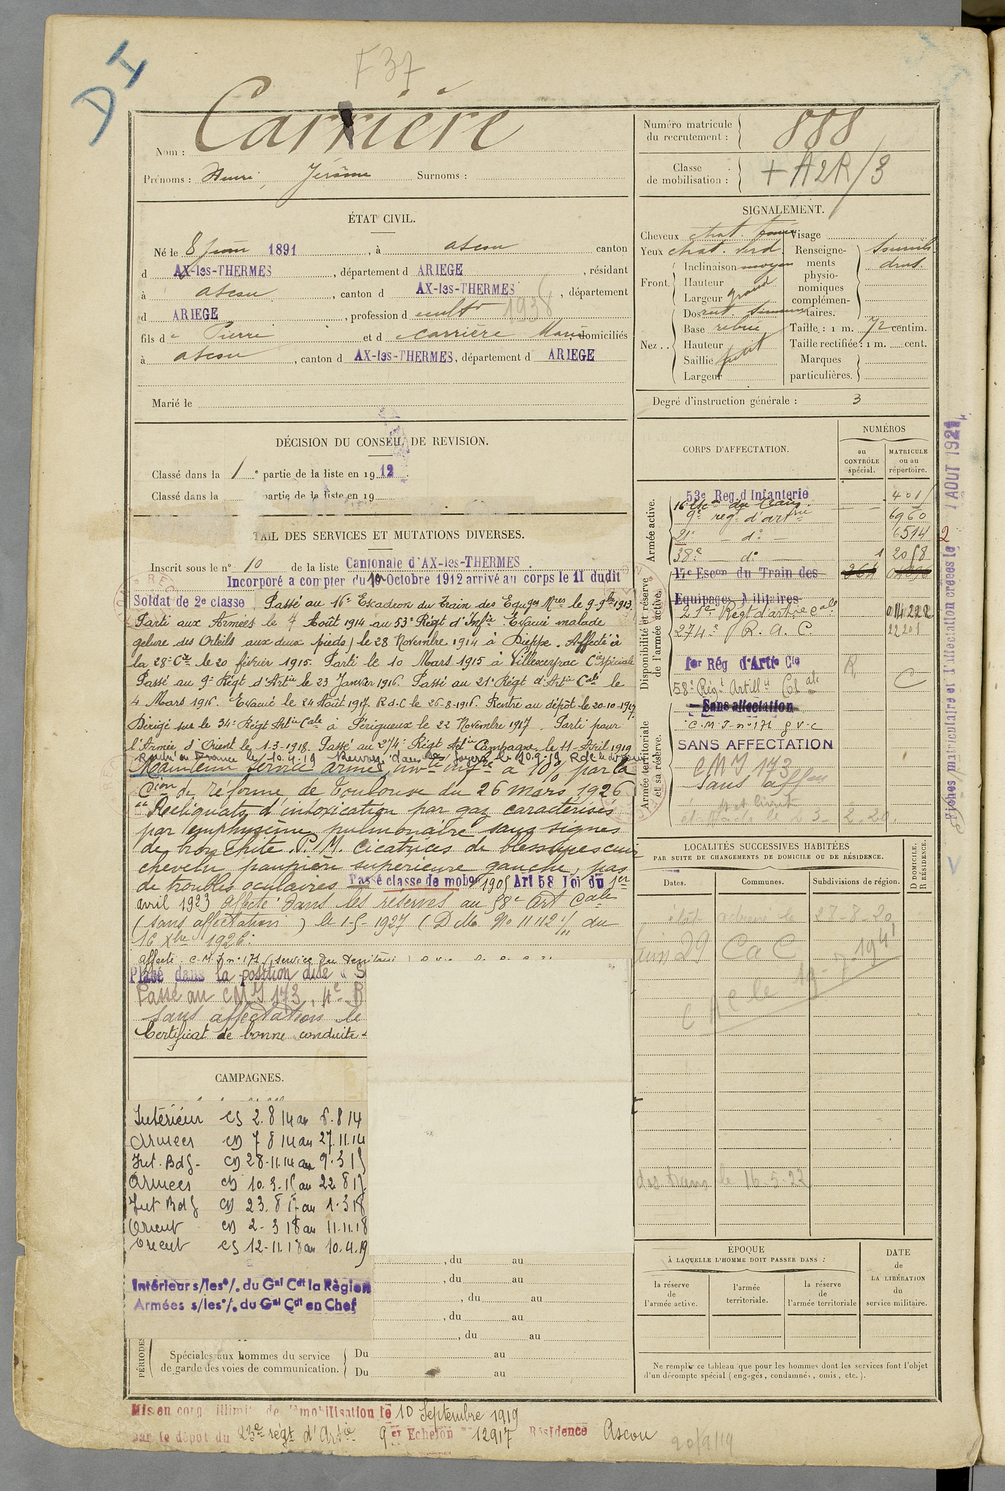 DI
F 37
Nom : Carrière
Prénoms : Henri, Jérôme Surnoms :
ÉTAT CIVIL.
Né le 8 juin 1891, à ascou canton
d AX-les-THERMES, département d ARIEGE, résidant
à ascou, canton d AX-les-THERMES, département
d ARIEGE, profession d cultr 1938
fils de Pierre et d carrière Marie domiciliés
à ascou, canton d AX-les-THERMES, département d ARIEGE
Marié le
DÉCISION DU CONSEIL DE REVISION.
Classé dans la 1e partie de la liste en 1912
Classé dans la partie de la liste en 19
TAIL DES SERVICES ET MUTATIONS DIVERSES.
Inscrit sous le n° 10 de la liste Cantonale d'AX-les-THERMES.
Incorporé a compter du 10 Octobre 1912 arrivé au corps le 11 dudit
Soldat de 2e classe. Passé au 16e Escadron du Train des Equges Mres le 9-9bre 1913
Parti aux Armées le 7 Août 1914 au 53e Régt d'Inftie Evacué malade
gelure des Orteils aux deux pieds) le 28 Novembre 1914 à Dieppe. Affecté à
la 28e Cie le 20 février 1915. Parti le 10 Mars 1915 à Villeseyrac Cie spéciale
Passé au 9e Régt d'Artie le 23 Janvier 1916. Passé au 21e Régt d'Artie Cale le
4 Mars 1916. Evacué le 24 Août 1917. R.d.C le 26-8-1916. Rentre au dépôt le 20-10-1917
Dirigé sur le 34e Régt Artie Cale à Périgueux le 22 Novembre 1917. Parti pour
l'Armée d'Orient le 1-3-1918. Passé au 274e Régt Artie Campagne le 11 Avril 1919
Rentré en France le 10.4.19
Maintenu service armé, à 10% par la
Cion de réforme de Toulouse du 26 mars 1926
"Reliquats d'intoxication par gaz caractérisés
par emphysème pulmonaire sans signes
de bronchite. P. M. Cicatrices de blessures cuir
chevelu, paupière supérieure gauche, pas
de troubles oculaires. Passé classe de mobon 1905 Art 58 loi du 1er
avril 1923 affecté dans les réserves au 58e art Cale
(sans affectation) le 1-5-1927 (D. Mle No 11112 1/11 du
16 Xbre 1926.
affecté C.M.I n° 171 (service du Territoire)
Placé dans la position dite "S
Passé au CMI 173,
Sans affectation le
Certificat de bonne conduite
CAMPAGNES.
Intérieur CS 2.8.14 au 6.8.14
Armées CD 7 8 14 au 27.11.14
Int. Bdg- CD 28-11.14 au 9.3.15
Armées CD 10.3.15 au 22 8 17
Int Bdg CD 23.8 17 au 1.3 18
Orient CD 2-3 18 au 11.11.18
Orient CS 12-11.18 au 10.4.19
Intérieur s/les o/. du Gal Cdt la Région
Armées s/les o/. du Gal Cdt en Chef
, du au
, du au
, du au
, du au
, du au
PÉRIODES
Spéciales aux hommes du service de garde des voies de communication.
Du au
Du au
Mis en congé illimité de démobilisation le 10 Septembre 1919
par le dépôt du 23e régt d'Artie 9er Echelon 12917 Résidence Ascou
20/9/19
Numéro matricule du recrutement : 888
Classe de mobilisation : + A2R/3
SIGNALEMENT.
Cheveux chat. foncé Visage
Yeux chat. verd.
Front. Inclinaison moyen
Hauteur
Largeur grand
Nez.. Dos rect. sinueux
Base relevé
Hauteur
Saillie petit
Largeur
Renseignements physionomiques complémentaires. Sourcils droit.
Taille : 1 m. 72 centim.
Taille rectifiée : 1 m. cent.
Marques particulières.
Degré d'instruction générale : 3
CORPS D'AFFECTATION.
NUMÉROS
au CONTRÔLE spécial.
MATRICULE ou au répertoire.
Armée active.
53e Reg. d Infanterie 401
16e Ecn du Train. 6960
9e reg. d'artrie 6514
21e — do — 2
38e — do 1 2058
Disponibilité et réserve de l'armée active.
17e Escon du Train des Equipages Militaires 364
21e Régt d'artie cale 04222
274e R. A. C. 22201
1er Rég d'Artie Cle R C
58e Régt Artillie Colale
Sans affectation
Armée territoriale et sa réserve.
C.M.I-n° 171 g v-c
SANS AFFECTATION
CMI 173
Sans affon
LOCALITÉS SUCCESSIVES HABITÉES
PAR SUITE DE CHANGEMENTS DE DOMICILE OU DE RÉSIDENCE.
Dates. Communes. Subdivisions de région. D DOMICILE. R RÉSIDENCE.
adressé le 27-8-20
juin 29 CaC
CAC le 19-7-1941
des trans le 16-5-22
ÉPOQUE
À LAQUELLE L'HOMME DOIT PASSER DANS :
la réserve de l'armée active.
l'armée territoriale.
la réserve de l'armée territoriale
DATE de LA LIBÉRATION du service militaire.
Ne remplir ce tableau que pour les hommes dont les services font l'objet
d'un décompte spécial (engagés, condamnés, omis, etc.).
Fiches matriculaire et d'affectation créées le 1 AOUT 1921